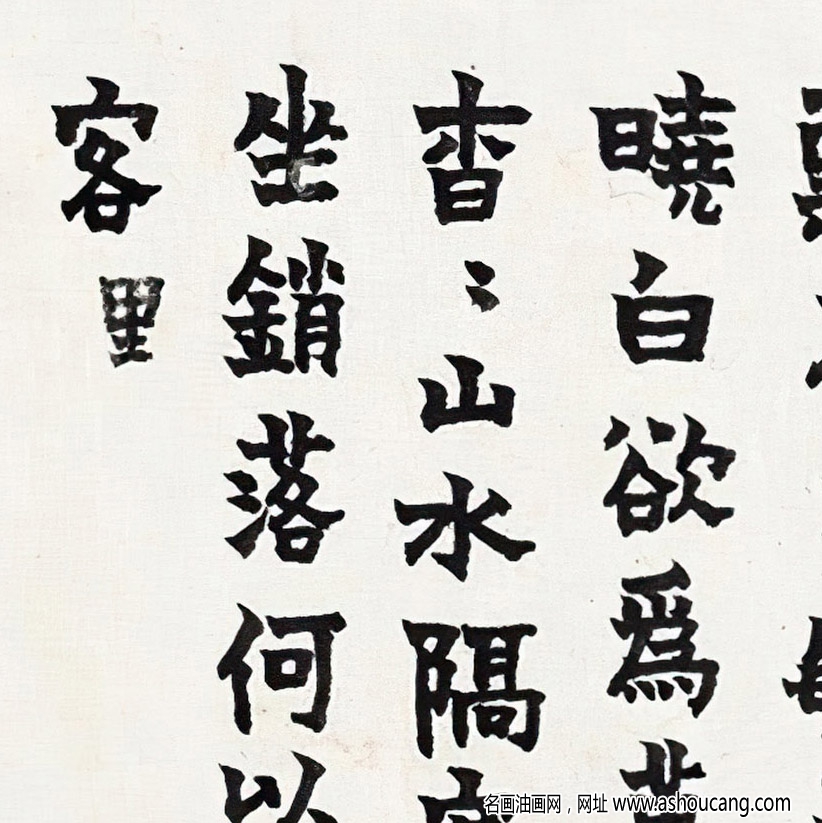 曉白欲爲
杳〻山水隔
坐銷落何以
客
里
名画油画网，网址 www.ashoucang.com